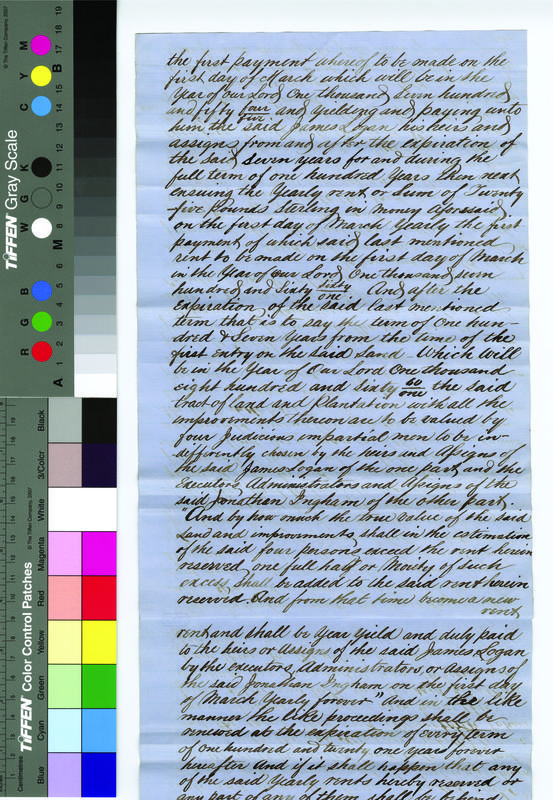 the first payment whereof to be made on the
first day of March which will be in the
Year of our Lord One thousand seven hundred
and fifty four
five and Yielding and paying unto
him the said James Logan his heirs and
assigns from and after the expiration of
the said seven years for and during the
full term of one hundred Years then next
ensuing the Yearly rent or Sum of Twenty
five Pounds Sterling in money aforesaid
on the first day of March Yearly the first
payment of which said last mentioned
rent to be made on the first day of March
in the Year of our Lord One thousand seven
hundred and Sixty sixty
one. And after the
expiration of the said last mentioned
term that is to say the term of One hun-
dred & Seven Years from the time of the
first entry on the said Land - Which will
be in the Year of Our Lord One thousand
eight hundred and sixty 60
one the said
tract of land and Plantation with all the
improvements thereon are to be valued by
four Judicious impartial men to be in-
differently chosen by the heirs and Assigns of
the said James Logan of the one part and the
Executors Administrators and Assigns of the
said Jonathan Ingham of the other part.
"And by how much the true value of the said
Land and improvements shall in the estimation
of the said four persons exceed the rent herein
reserved one full half or Moiety of such
excess shall be added to the said rent herein
reserved. And from that time become a new
rent
rent and shall be Year Yield and duly paid
to the heirs or Assigns of the said James Logan
by the executors, Administrators, or Assigns of
the said Jonathan Ingham on the first day
of March Yearly forever" and in the like
manner the like proceedings shall be
renewed at the expiration of every term
of one hundred and twenty one years forever
hereafter And if it shall happen that any
of the said Yearly rents hereby reserved or
any part of any of them shall be
TIFFEN Gray Scale
© The Tiffen Company, 2007
R G B W G K C Y M
A 1 2 3 4 5 6 M 8 9 10 11 12 13 14 15 B 17 18 19
TIFFEN Color Control Patches
© The Tiffen Company, 2007
Centimetres
Blue Cyan Green Yellow Red Magenta White 3/Color Black